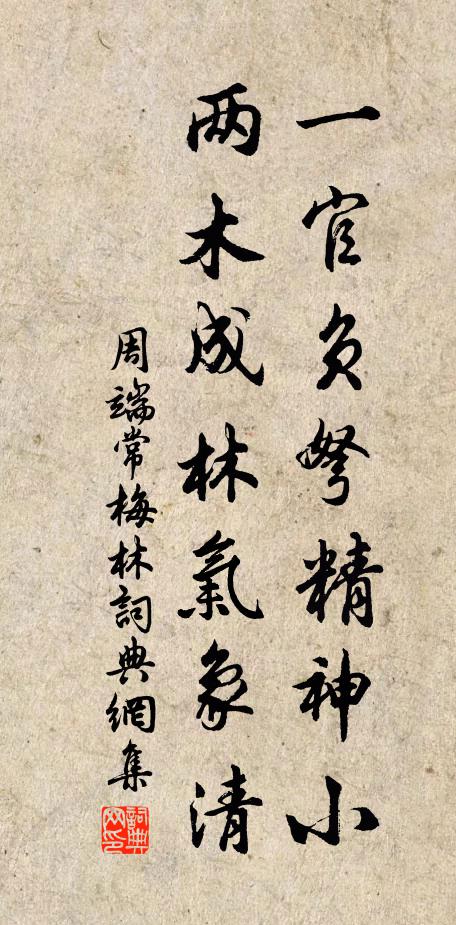 一官負弩精神小
两木成林氣象清
周端常梅林詞典網集
詞典網印